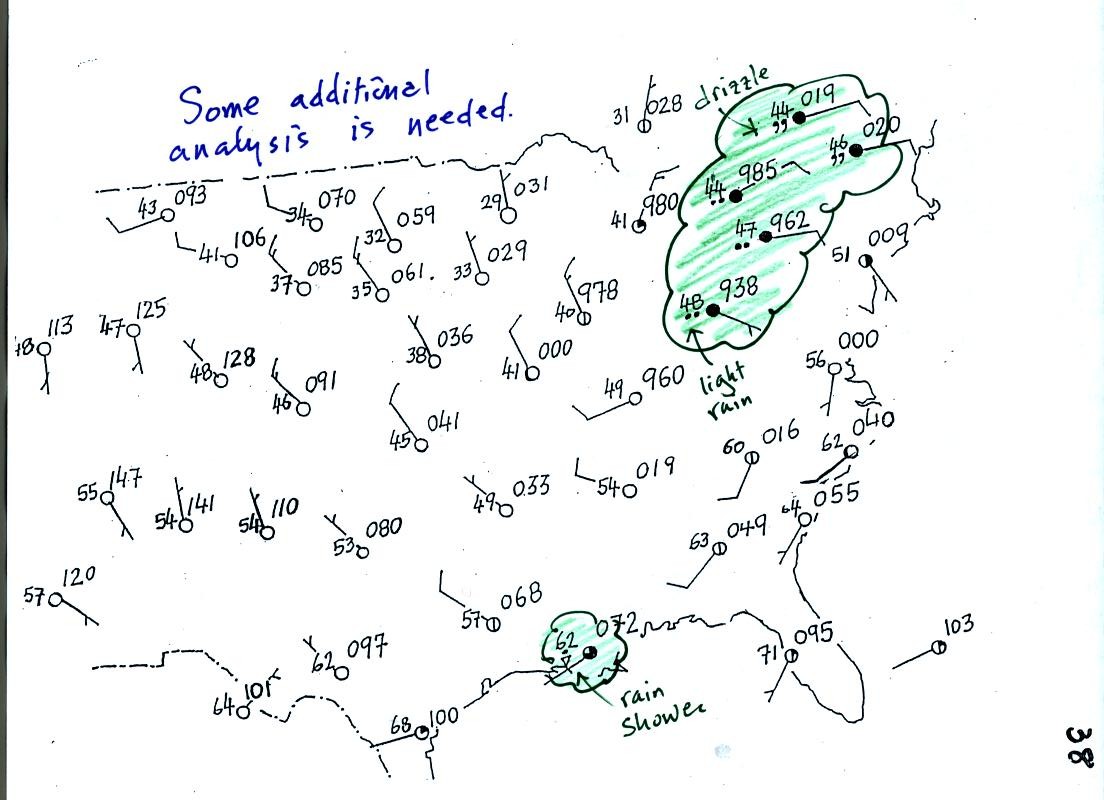 Some additional
analysis is needed.
drizzle
31 028
44 019
46 020
44 985
43 093
34 070
29 031
32 059
41 980
47 962
41 106
37 085
35 061.
33 029
51 009
40 978
48 938
113
47 125
48 128
38 036
41 000
56 000
46 091
49 960
light
rain
45 041
60 016
62 040
55 147
54 141
54 110
49 033
54 019
64 055
53 080
63 049
57 120
57 068
62 072
62 097
71 095
103
64 101
68 100
rain
shower
38